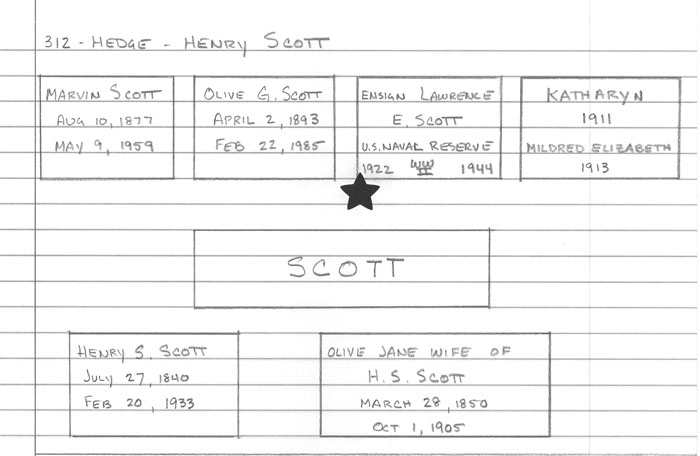 312 - HEDGE - HENRY SCOTT
MARVIN SCOTT
AUG 10, 1877
MAY 9, 1959
OLIVE G. SCOTT
APRIL 2, 1893
FEB 22, 1985
ENSIGN LAWRENCE
E. SCOTT
U.S. NAVAL RESERVE
1922 WW II 1944
KATHARYN
1911
MILDRED ELIZABETH
1913
SCOTT
HENRY S. SCOTT
JULY 27, 1840
FEB 20, 1933
OLIVE JANE WIFE OF
H.S. SCOTT
MARCH 28, 1850
OCT 1, 1905